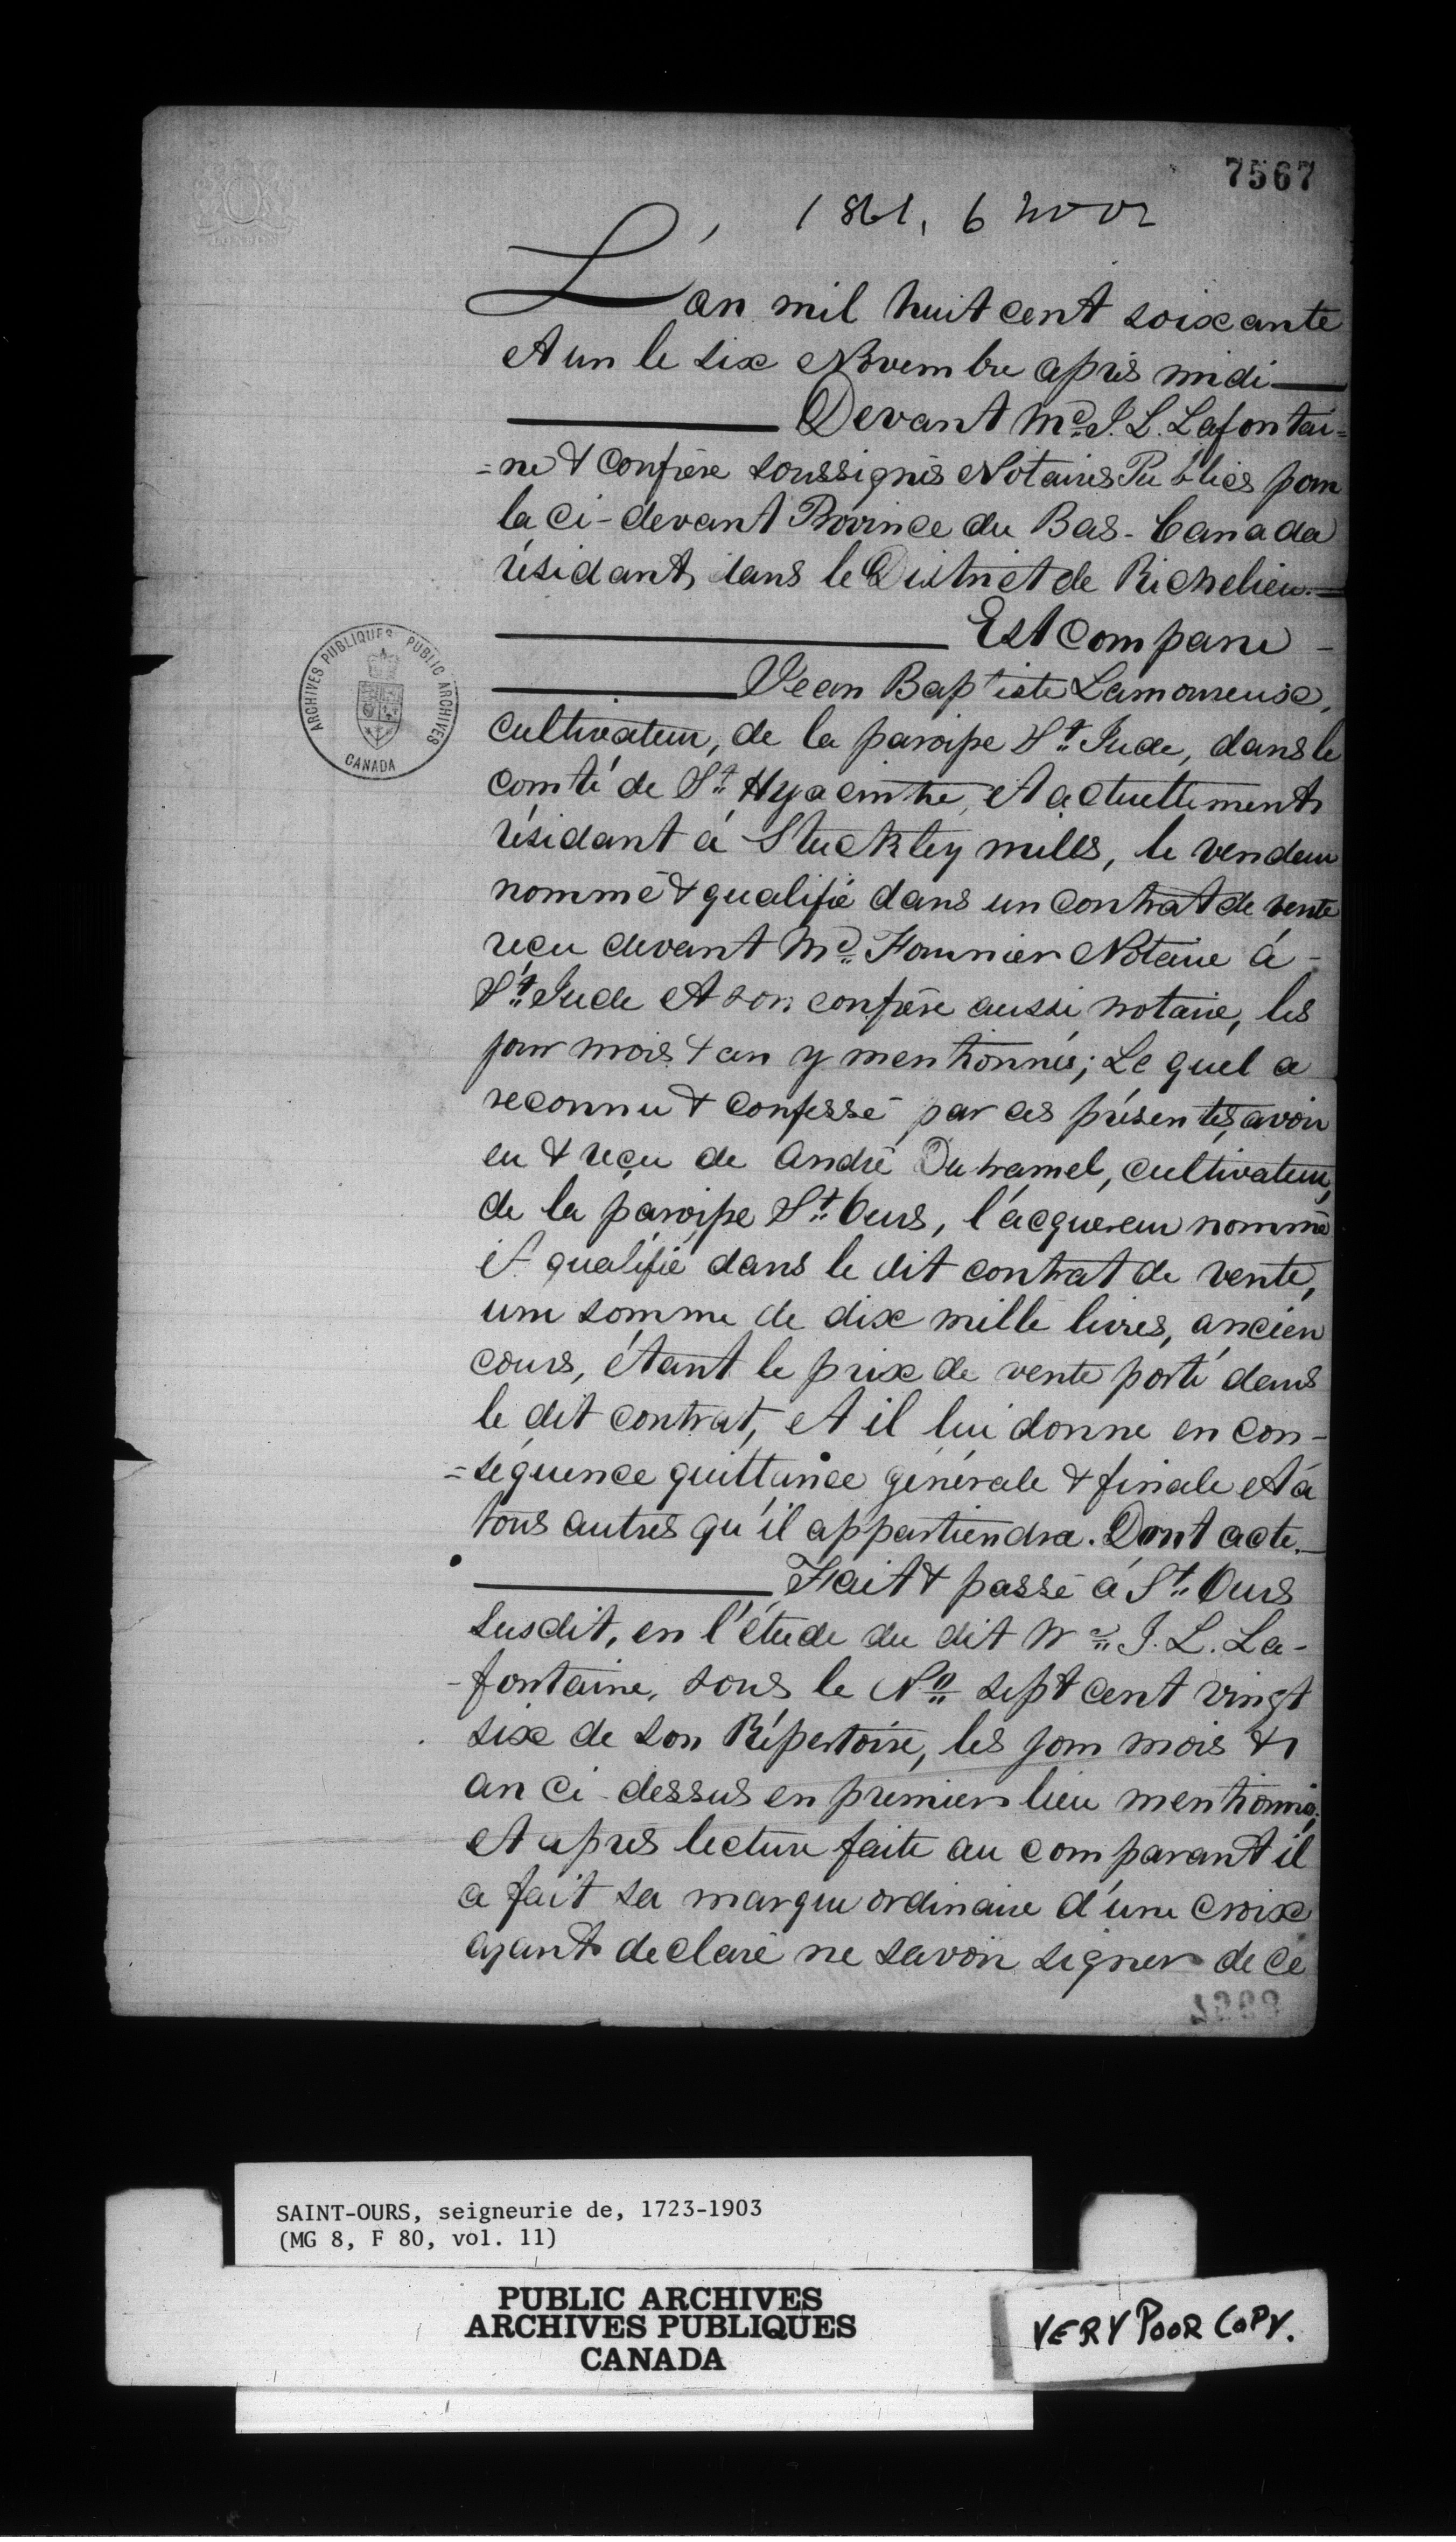 7567
1861, 6 nov
L'an mil huit cent soixante
et un le six Novembre après midi
Devant Me. J. L. Lafontai=
=ne & Confrère soussignés Notaires Publics pour
la ci-devant Province du Bas-Canada
résidant dans le District de Richelieu.
Est Comparu
Jean Baptiste Lamoureux,
cultivateur, de la paroisse St. Jude, dans le
comté de St. Hyacinthe, et actuellement
résidant à Stuckley mills, le vendeur
nommé & qualifié dans un contrat de vente
reçu devant Me. Fournier Notaire à
St. Jude et son confrère aussi notaire, les
jour mois & an y mentionnés; Lequel a
reconnu & confessé par ces présentes, avoir
eu & reçu de André Duhamel, cultivateur,
de la paroisse St. Ours, l'acquereur nommé
et qualifié dans le dit contrat de vente,
une somme de dix mille livres, ancien
cours, étant le prix de vente porté dans
le dit contrat, et il lui donne en con-
=séquence quittance générale & finale et à
tous autres qu'il appartiendra. Dont acte.
Fait & passé à St. Ours
susdit, en l'étude du dit Me. J. L. La-
-fontaine, sous le No. sept cent vingt
six de son Répertoire, les jour mois &
an ci-dessus en premier lieu mentionnés;
et après lecture faite au comparant il
a fait sa marque ordinaire d'une croix
ayant declaré ne savoir signer de ce
ARCHIVES PUBLIQUES PUBLIC ARCHIVES
CANADA
LONDON
SAINT-OURS, seigneurie de, 1723-1903
(MG 8, F 80, vol. 11)
PUBLIC ARCHIVES
ARCHIVES PUBLIQUES
CANADA
VERY POOR COPY.